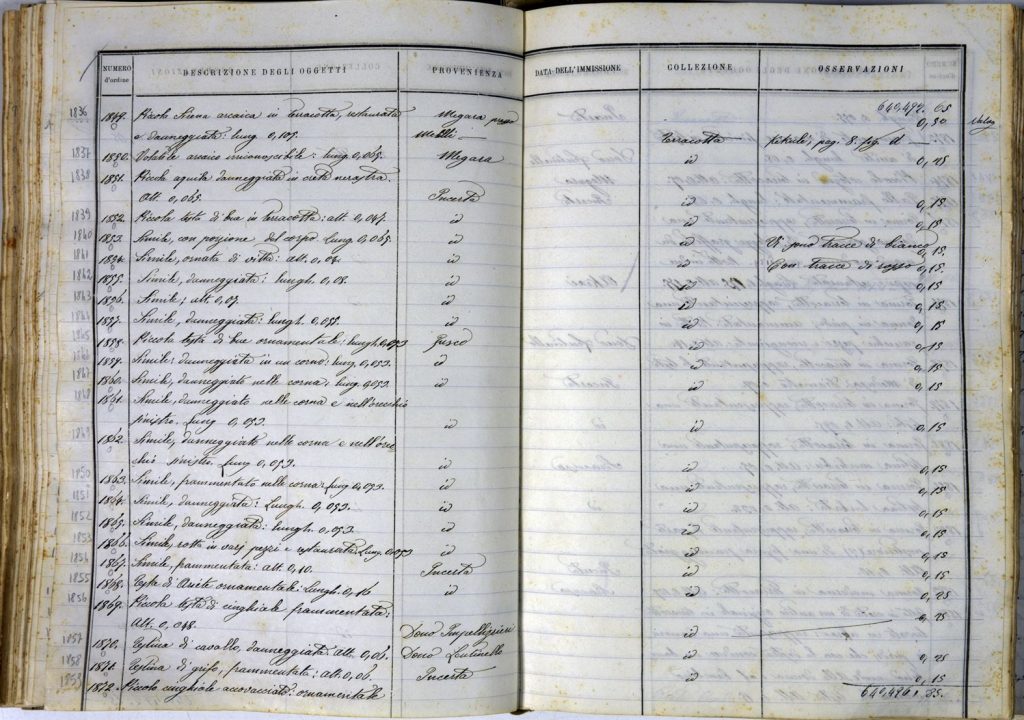 NUMERO d'ordine DESCRIZIONE DEGLI OGGETTI PROVENIENZA DATA DELL'IMMISSIONE COLLEZIONE OSSERVAZIONI
640,492. 05
1836 1849. Piccola Sirena arcaica in terracotta, restaurata Megara presso 0,30
e danneggiata lung. 0,105. Melilli Terracotta
1837 1850. Volatile arcaico irriconoscibile: lung. 0,065. Megara id 0,25
1838 1851. Piccola aquila danneggiata in creta nerastra.
Alt. 0,065. Incerta id 0,15
1839 1852. Piccola testa di bue in terracotta: alt. 0,047. id id 0,15
1840 1853. Simile, con porzione del corpo. Lung. 0,065. id id Vi sono tracce di bianco 0,15
1841 1854. Simile, ornata di vitta: alt. 0,04. id id Con tracce di rosso 0,15
1842 1855. Simile, danneggiata: lungh. 0,05. id id 0,15
1843 1856. Simile; alt. 0,07. id id 0,15
1857. Simile, danneggiata: lungh. 0,055. id id 0,15
1858. Piccola testa di bue ornamentale: lungh. 0,053 Fusco id 0,15
1859. Simile: danneggiata in un corno: lung. 0,053 id id 0,15
1860. Simile, danneggiata nelle corna, lung. 0,053. id id 0,15
1861. Simile, danneggiata nelle corna e nell'orecchio
sinistro. Lung. 0,053. id id 0,15
1862. Simile, danneggiata nelle corna e nell'orec
chio sinistro. Lung. 0,053. id id 0,15
1850 1863. Simile, frammentata nelle corna: lung. 0,053. id id 0,15
1851 1864. Simile, danneggiata: Lungh. 0,053. id id 0,15
1852 1865. Simile, danneggiata: lungh. 0,053. id id 0,15
1853 1866. Simile, rotta in varj pezzi e restaurata. Lung. 0,053 id id 0,15
1854 1867. Simile, frammentata: alt. 0,10. Incerta id 0,15
1855 1868. Testa di Ariete ornamentale: Lungh. 0,16 id id 0,25
1856 1869. Piccola testa di cinghiale frammentata:
Alt. 0,048. Dono Impellizzeri id 0,25
1857 1870. Testina di cavallo, danneggiata: alt. 0,06. Dono Lentinello id 0,25
1858 1871. Testina di grifo, frammentata: alt. 0,06. Incerta id 0,15
1872. Piccolo cinghiale accovacciato ornamentale